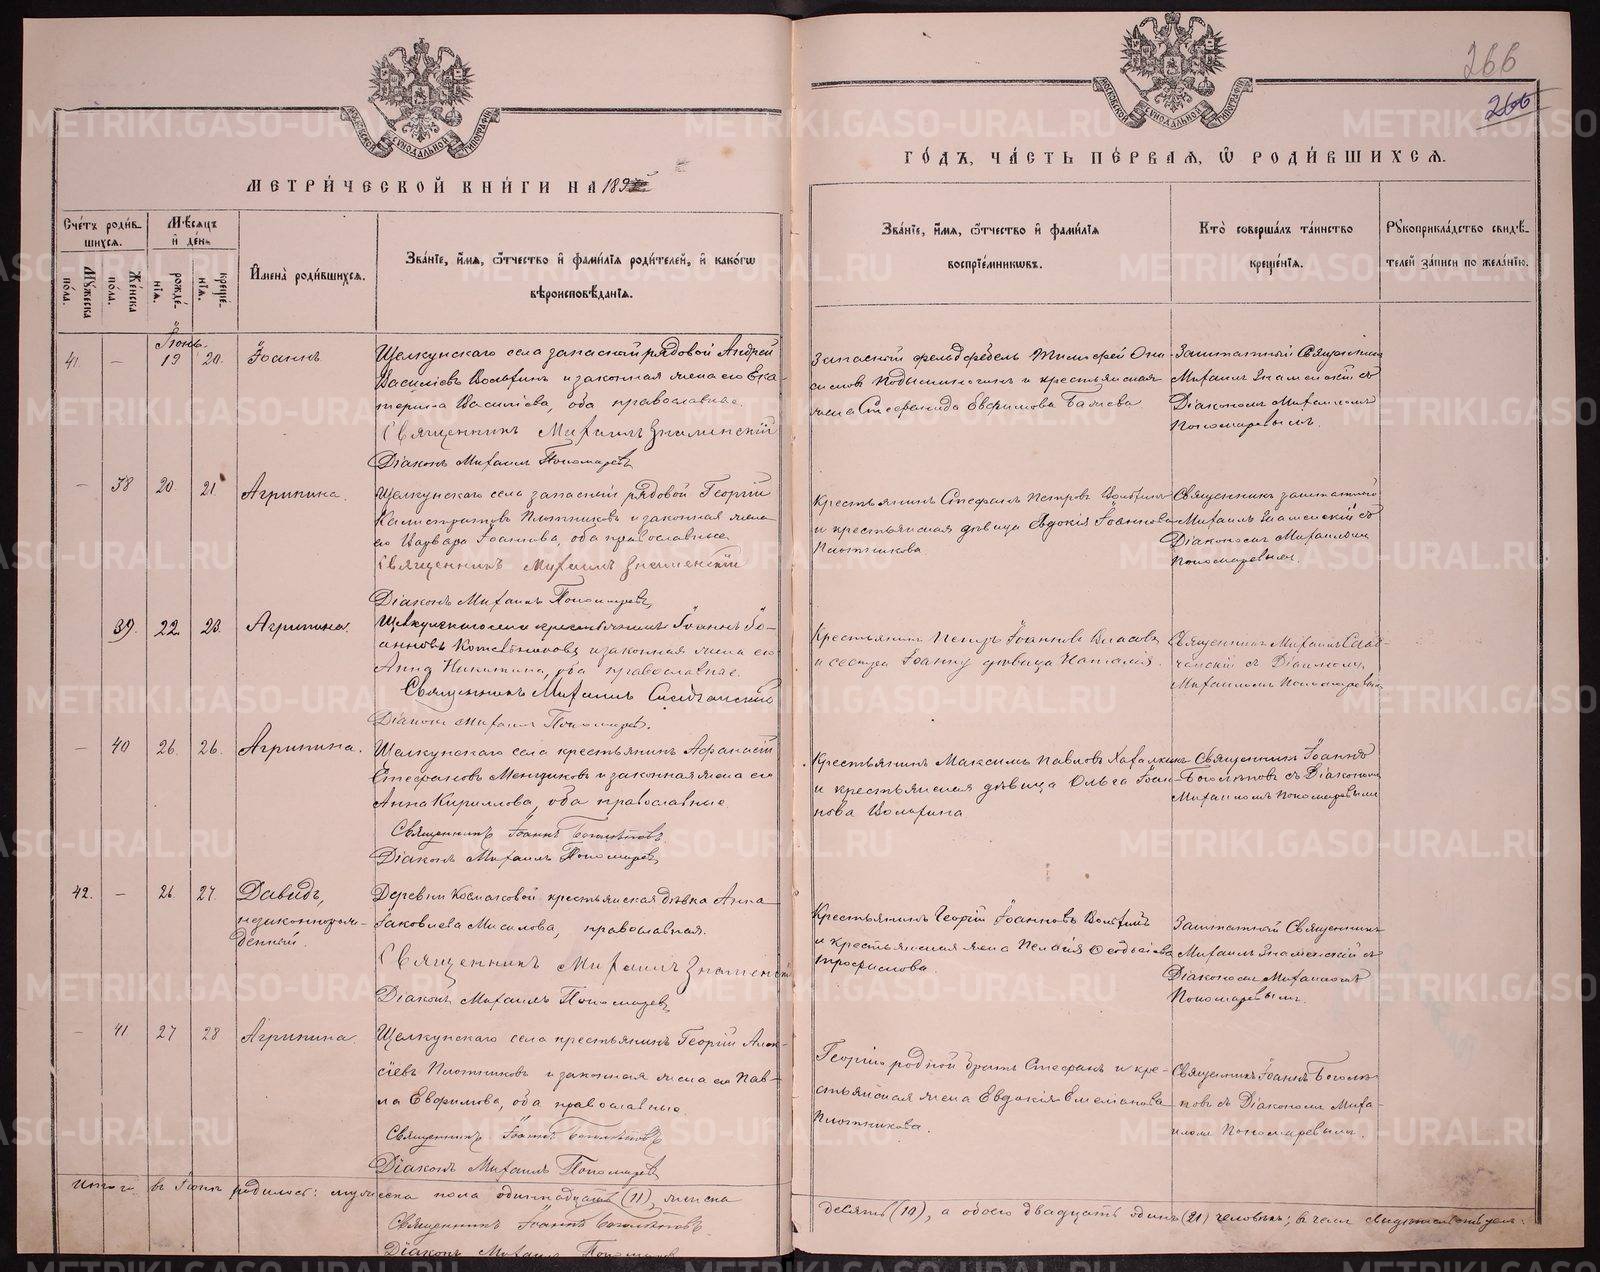 266
266
МЕТРИ́ЧЕСКОЙ КНИ́ГИ НА 189
ГО́ДЪ, ЧА́СТЬ ПЕ́РВАЯ, Ѿ РОДИ́ВШИХСЯ.
МОСКОВСКОЙ СѴНОДАЛЬНОЙ ТИПОГРАФІИ
МОСКОВСКОЙ СѴНОДАЛЬНОЙ ТИПОГРАФІИ
Сче́тъ роди́в-
шихся.
Му́жеска по́ла.
Же́нска по́ла.
Мѣ́сяцъ
и҆ де́нь
рожде́-
нія.
креще́-
нія.
И҆мена̀ роди́вшихся.
Зва́нїе, и҆́мя, ѻ҆́тчество и҆ фами́лїя роди́телей, и҆ како́гѡ
вѣроисповѣ́данїя.
Зва́нїе, и҆́мя, ѻ҆́тчество и҆ фами́лїя
воспрїе́мникѡвъ.
Кто̀ соверша́лъ та́инство
креще́нїя.
Рꙋкоприкла́дство свидѣ́-
телей за́писи по жела́нїю.
Іюнь.
41. — 19 20. Іоаннъ
Щелкунскаго села запасный рядовой Андрей
Василіевъ Вольхинъ и законная жена его Ека-
терина Василіева, оба православные.
Священникъ Михаилъ Знаменскій
Діаконъ Михаилъ Пономаревъ
Запасный фельдфебель Тимофей
и крестьянская
жена Стефанида Евфимова
Заштатный Священникъ
Михаилъ Знаменскій съ
Діакономъ Михаиломъ
Пономаревымъ.
— 38 20. 21. Агрипина.
Щелкунскаго села запасный рядовой Георгій
Калистратовъ Плотниковъ и законная жена
его Варвара Іоаннова, оба православные
Священникъ Михаилъ Знаменскій
Діаконъ Михаилъ Пономаревъ
Крестьянинъ Стефанъ Петровъ
и крестьянская дѣвица Евдокія Іоаннова
Плотникова
Священникъ заштатный
Михаилъ Знаменскій съ
Діакономъ Михаиломъ
Пономаревымъ.
39. 22. 23. Агрипина.
Щелкунскаго села крестьянинъ Іоаннъ Іо-
анновъ и законная жена его
Анна Никитина, оба православные.
Священникъ Михаилъ
Діаконъ Михаилъ Пономаревъ.
Крестьянинъ Петръ Іоанновъ Власовъ
и сестра Іоанну дѣвица Наталія.
Священникъ Михаилъ
съ Діакономъ
Михаиломъ Пономаревымъ
— 40 26. 26. Агрипина.
Щелкунскаго села крестьянинъ Афанасій
Стефановъ Меньшиковъ и законная жена его
Анна Кириллова, оба православные
Священникъ Іоаннъ Боголѣповъ
Діаконъ Михаилъ Пономаревъ
Крестьянинъ Максимъ Павловъ
и крестьянская дѣвица Ольга Іоан-
нова Вольхина
Священникъ Іоаннъ
Боголѣповъ съ Діакономъ
Михаиломъ Пономаревымъ
42. — 26. 27. Давидъ,
незаконнорож-
денный.
Деревни Космаковой крестьянская дѣвка Анна
Іаковлева Мисилова, православная.
Священникъ Михаилъ Знаменскій
Діаконъ Михаилъ Пономаревъ
Крестьянинъ Георгій Іоанновъ
и крестьянская жена Пелагія
Трофимова.
Заштатный Священникъ
Михаилъ Знаменскій съ
Діакономъ Михаиломъ
Пономаревымъ.
— 41 27 28 Агрипина.
Щелкунскаго села крестьянинъ Георгій Алек-
сіевъ Плотниковъ и законная жена его Пав-
ла Евфимова, оба православные.
Священникъ Іоаннъ Боголѣповъ
Діаконъ Михаилъ Пономаревъ
Георгію родной братъ Стефанъ и кре-
стьянская жена Евдокія Емелианова
Плотникова.
Священникъ Іоаннъ Боголѣ-
повъ съ Діакономъ Миха-
иломъ Пономаревымъ.
Итого въ Іюнѣ родилось: мужеска пола одиннадцать (11), женска
десять (10), а обоего двадцать одинъ (21) человѣкъ; въ чемъ свидѣтельствуемъ:
Священникъ Іоаннъ Боголѣповъ
Діаконъ Михаилъ Пономаревъ
METRIKI.GASO-URAL.RU